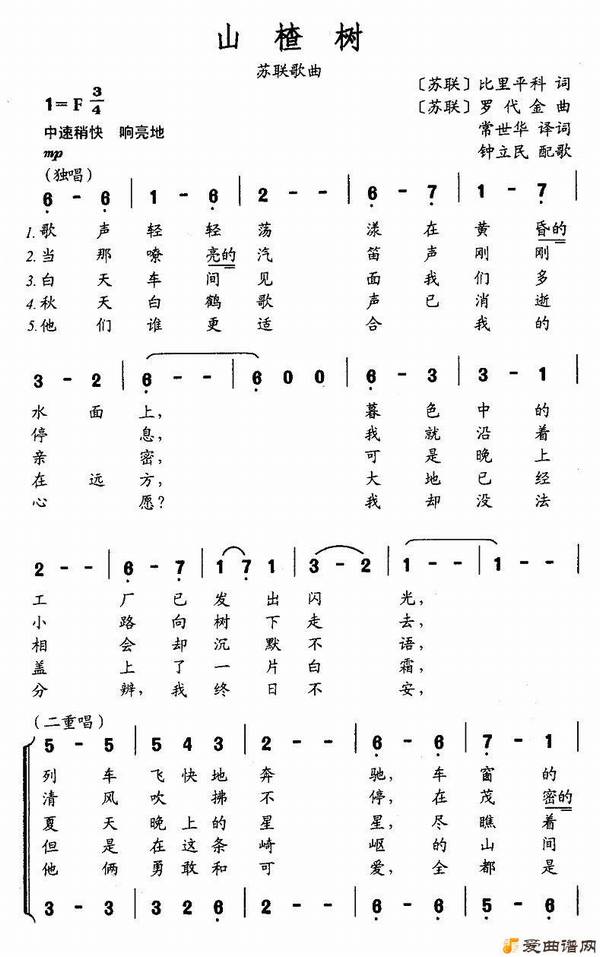 山楂树
苏联歌曲
〔苏联〕比里平科 词
〔苏联〕罗代金 曲
常世华 译词
钟立民 配歌
1=F 3/4
中速稍快 响亮地
mp
(独唱)
6 - 6 | 1 - 6 | 2 - - | 6 - 7 | 1 - 7 |
1.歌声轻轻荡漾在黄昏的
2.当那嘹亮的汽笛声刚刚
3.白天车间见面我们多
4.秋天白鹤歌声已消逝
5.他们谁更适合我的
3 - 2 | 6 - - | 6 0 0 | 6 - 3 | 3 - 1 |
水面上,暮色中的
停息,我就沿着
亲密,可是晚上
在远方,大地已经
心愿?我却没法
2 - - | 6 - 7 | 1 7 1 | 3 - 2 | 1 - - | 1 - - |
工厂已发出闪光,
小路向树下走去,
相会却沉默不语,
盖上了一片白霜,
分辨,我终日不安,
(二重唱)
5 - 5 | 5 4 3 | 2 - - | 6 - 6 | 7 - 1 |
列车飞快地奔驰,车窗的
清风吹拂不停,在茂密的
夏天晚上的星星,尽瞧着
但是在这条崎岖的山间
他俩勇敢和可爱,全都是
3 - 3 | 3 2 6 | 2 - - | 6 - 6 | 5 - 6 |
爱曲谱网